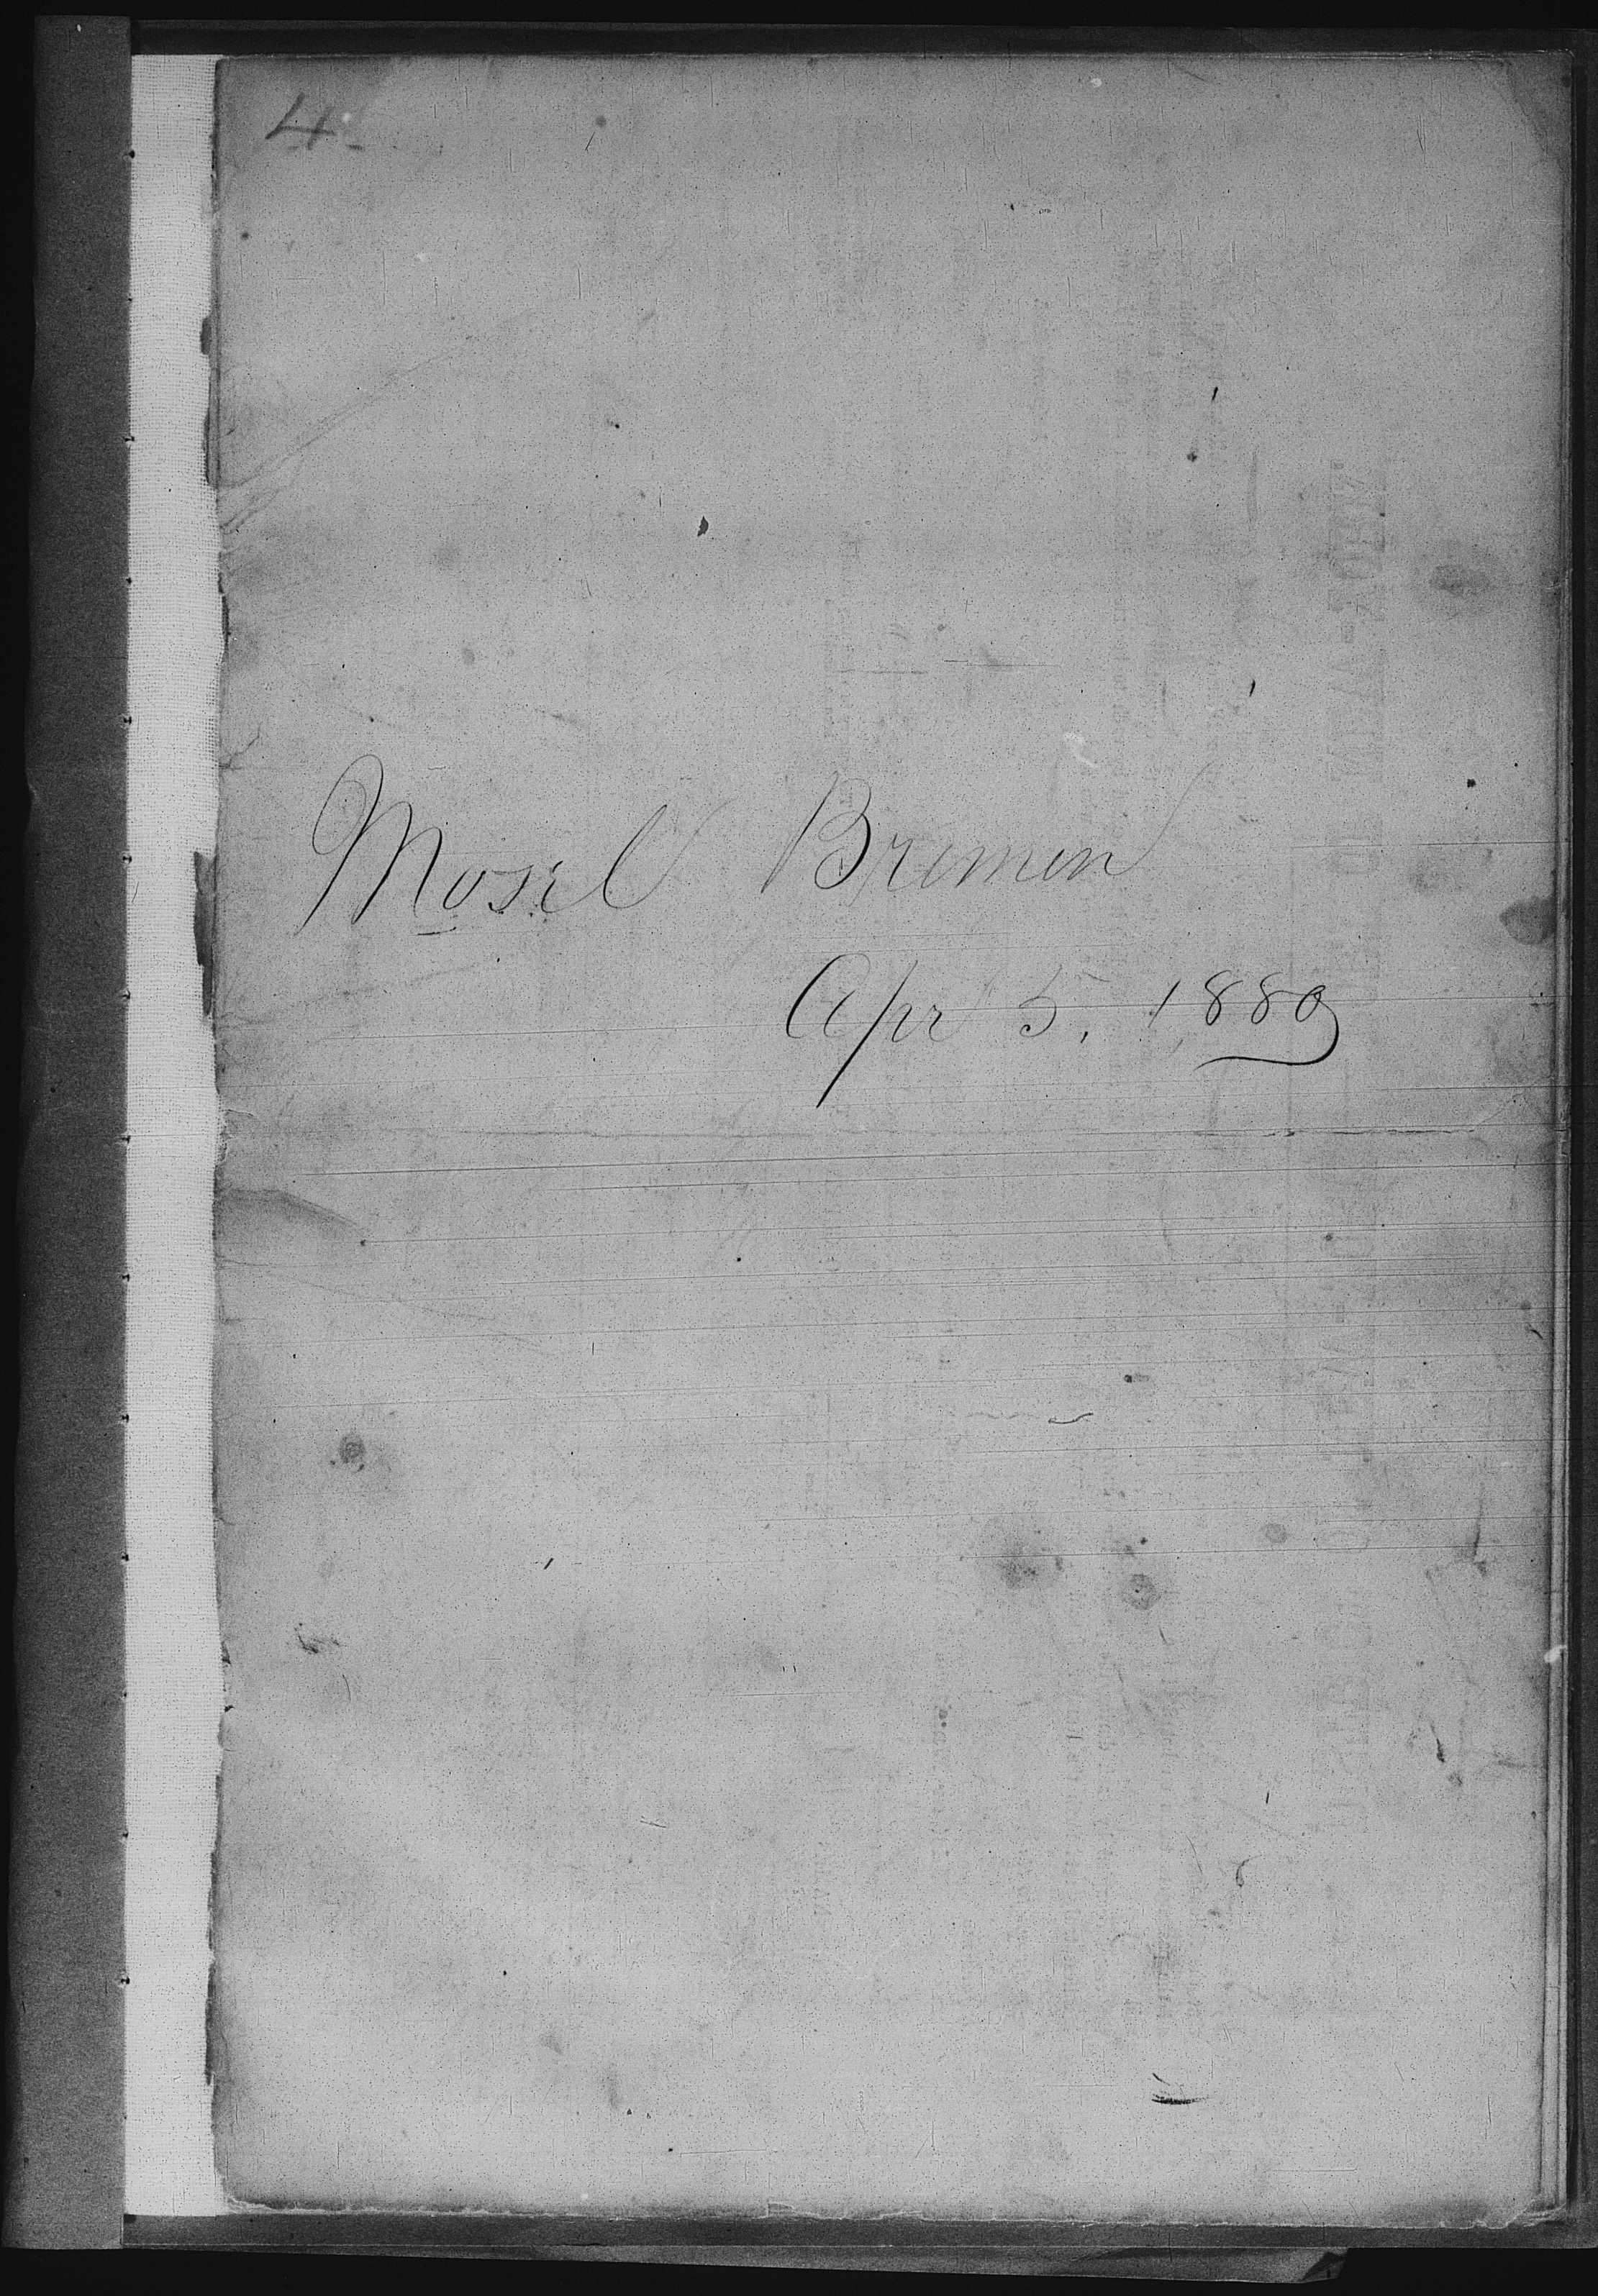 4
Mosel Bremen
Apr 5. 1880